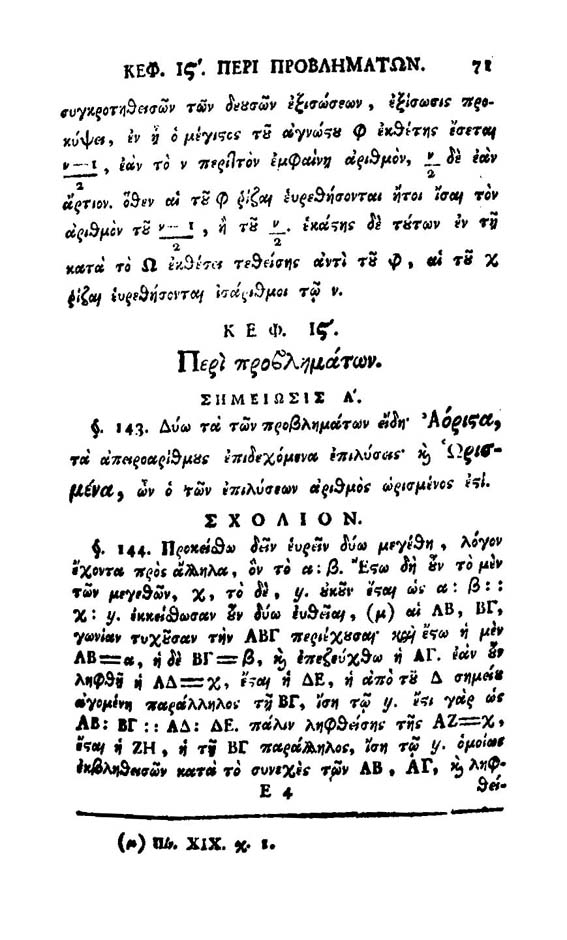 ΚΕΦ. Ιϛ'. ΠΕΡΙ ΠΡΟΒΛΗΜΑΤΩΝ. 71
συγκροτηθεισῶν τῶν δευσῶν ἐξισώσεων, ἐξίσωσις προ-
κύψει, ἐν ᾗ ὁ μέγιϛος τȣ̃ ἀγνώϛȣ Φ ἐκθέτης ἔσεται
ν—1/2, ἐὰν τὸ ν περιττὸν ἐμφαίνῃ ἀριθμὸν, ν/2 δὲ ἐὰν
ἄρτιον. ὅθεν αἱ τȣ̃ Φ ῥίζαι ἑυρεθήσονται ἤτοι ἴσαι τὸν
ἀριθμὸν τȣ̃ ν—1/2, ἢ τȣ̃ ν/2. ἑκάϛης δὲ τȣ́των ἐν τῇ
κατὰ τὸ Ω ἐκθέσει τεθείσης ἀντὶ τȣ̃ Φ, αἱ τȣ̃ χ
ῥίζαι ἑυρεθήσονται ἰσάριθμοι τῷ ν.
ΚΕΦ. Ιϛ'.
Περὶ προβλημάτων.
ΣΗΜΕΙΩΣΙΣ Α'.
§. 143. Δύω τὰ τῶν προβλημάτων εἴδη· Ἀόριϛα,
τὰ ἀπειροαρίθμȣς ἐπιδεχόμενα ἐπιλύσεις· ϗ Ὡρισ-
μένα, ὧν ὁ τῶν ἐπιλύσεων ἀριθμὸς ὡρισμένος ἐϛί.
ΣΧΟΛΙΟΝ.
§. 144. Προκείσθω δεῖν ἑυρεῖν δύω μεγέθη, λόγον
ἔχοντα πρὸς ἄλληλα, ὃν τὸ α: β. Ἔϛω δὴ ȣ̓͂ν τὸ μὲν
τῶν μεγεθῶν, χ, τὸ δὲ, y. ȣ̓κȣ͂ν ἔϛαι ὡς α: β::
χ: y. ἐκκείσθωσαν ȣ̓͂ν δύω ἐυθεῖαι, (μ) αἱ ΑΒ, ΒΓ,
γωνίαν τυχȣ͂σαν τὴν ΑΒΓ περιέχȣσαι· καὶ ἔϛω ἡ μὲν
ΑΒ=α, ἡ δὲ ΒΓ=β, ϗ ἐπεζεύχθω ἡ ΑΓ. ἐὰν ȣ̓͂ν
ληφθῇ ἡ ΑΔ=χ, ἔϛαι ἡ ΔΕ, ἡ ἀπὸ τȣ̃ Δ σημείȣ
ἀγομένη παράλληλος τῇ ΒΓ, ἴση τῷ y. ἔϛι γὰρ ὡς
ΑΒ: ΒΓ :: ΑΔ: ΔΕ. πάλιν ληφθείσης τῆς ΑΖ=χ,
ἔϛαι ἡ ΖΗ, ἡ τῇ ΒΓ παράλληλος, ἴση τῷ y. ὁμοίως
ἐκβληθεισῶν κατὰ τὸ συνεχὲς τῶν ΑΒ, ΑΓ, ϗ ληφ-
Ε 4 θεί-
(μ) Πιν. XIX. χ. 1.